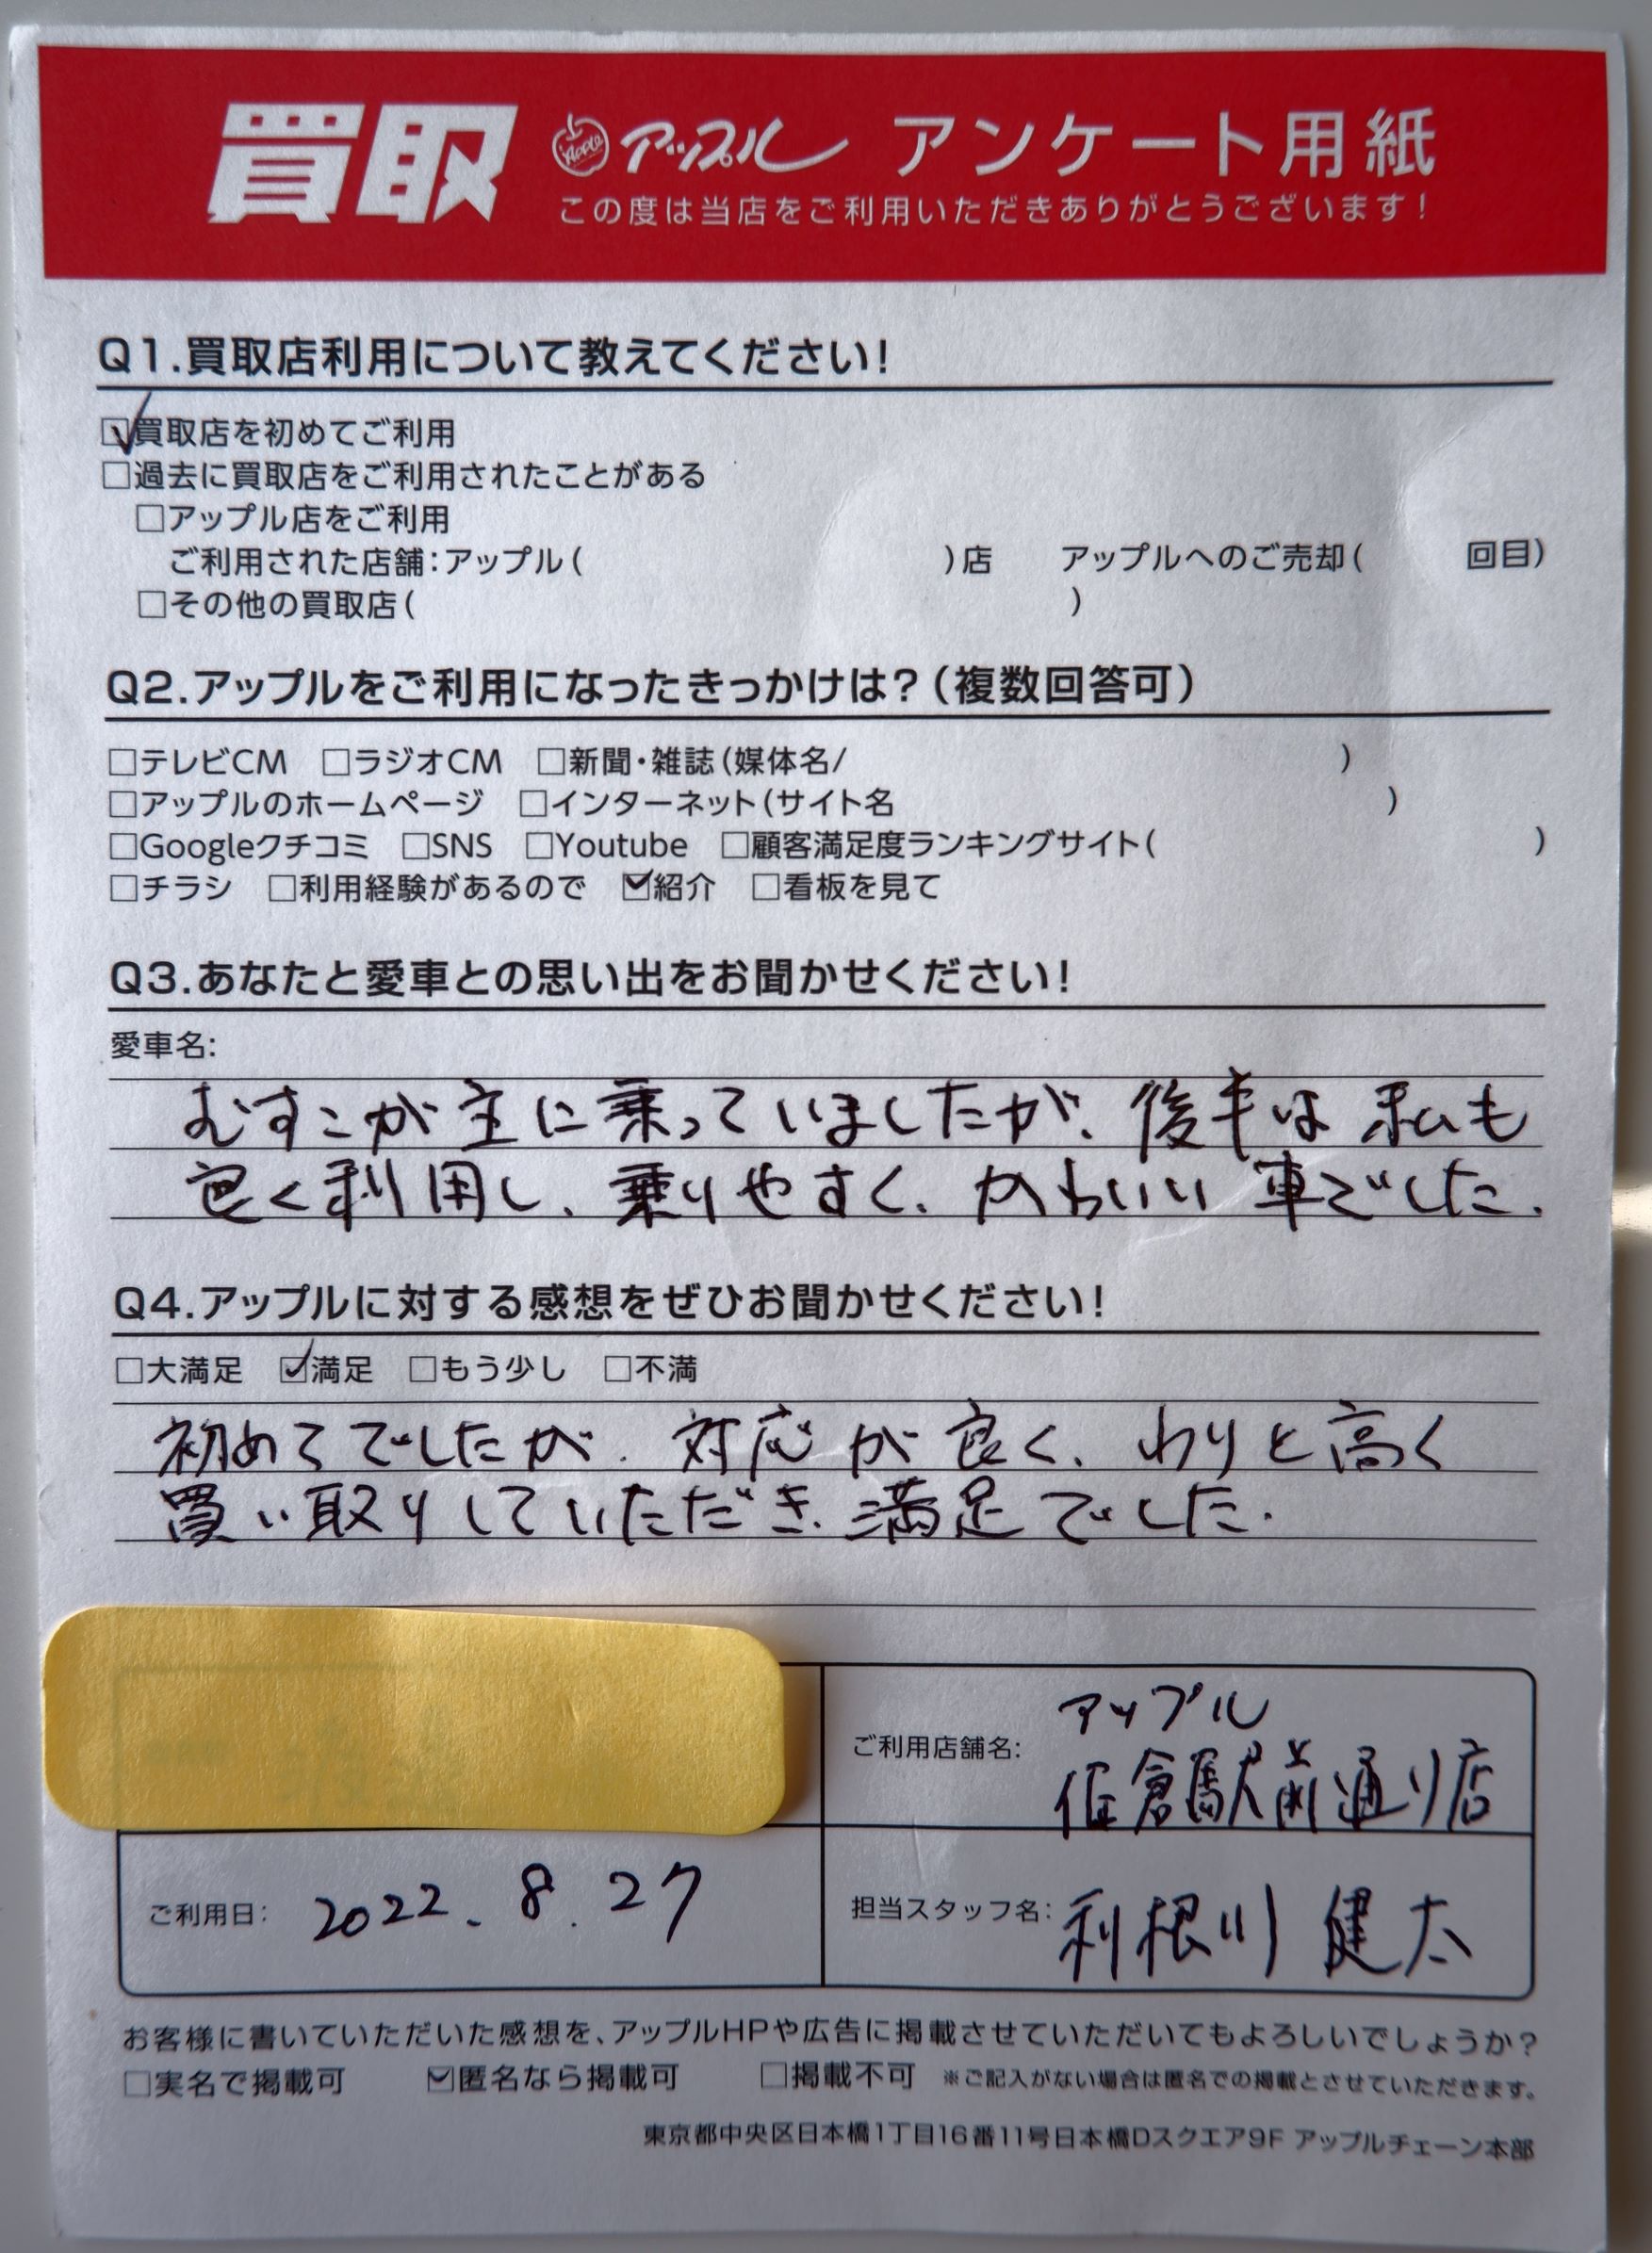 買取 Apple アップル アンケート用紙
この度は当店をご利用いただきありがとうございます!
Q1.買取店利用について教えてください!
☑買取店を初めてご利用
□過去に買取店をご利用されたことがある
□アップル店をご利用
ご利用された店舗:アップル( )店 アップルへのご売却( 回目)
□その他の買取店( )
Q2.アップルをご利用になったきっかけは?(複数回答可)
□テレビCM □ラジオCM □新聞・雑誌(媒体名/ )
□アップルのホームページ □インターネット(サイト名 )
□Googleクチコミ □SNS □Youtube □顧客満足度ランキングサイト( )
□チラシ □利用経験があるので ☑紹介 □看板を見て
Q3.あなたと愛車との思い出をお聞かせください!
愛車名:
むすこが主に乗っていましたが、後半は私も
良く利用し、乗りやすく、かわいい車でした.
Q4.アップルに対する感想をぜひお聞かせください!
□大満足 ☑満足 □もう少し □不満
初めてでしたが、対応が良く、わりと高く
買い取りしていただき、満足でした.
ご利用店舗名: アップル
佐倉駅前通り店
ご利用日: 2022.8.27 担当スタッフ名: 利根川 健太
お客様に書いていただいた感想を、アップルHPや広告に掲載させていただいてもよろしいでしょうか?
□実名で掲載可 ☑匿名なら掲載可 □掲載不可 ※ご記入がない場合は匿名での掲載とさせていただきます。
東京都中央区日本橋1丁目16番11号日本橋Dスクエア9F アップルチェーン本部